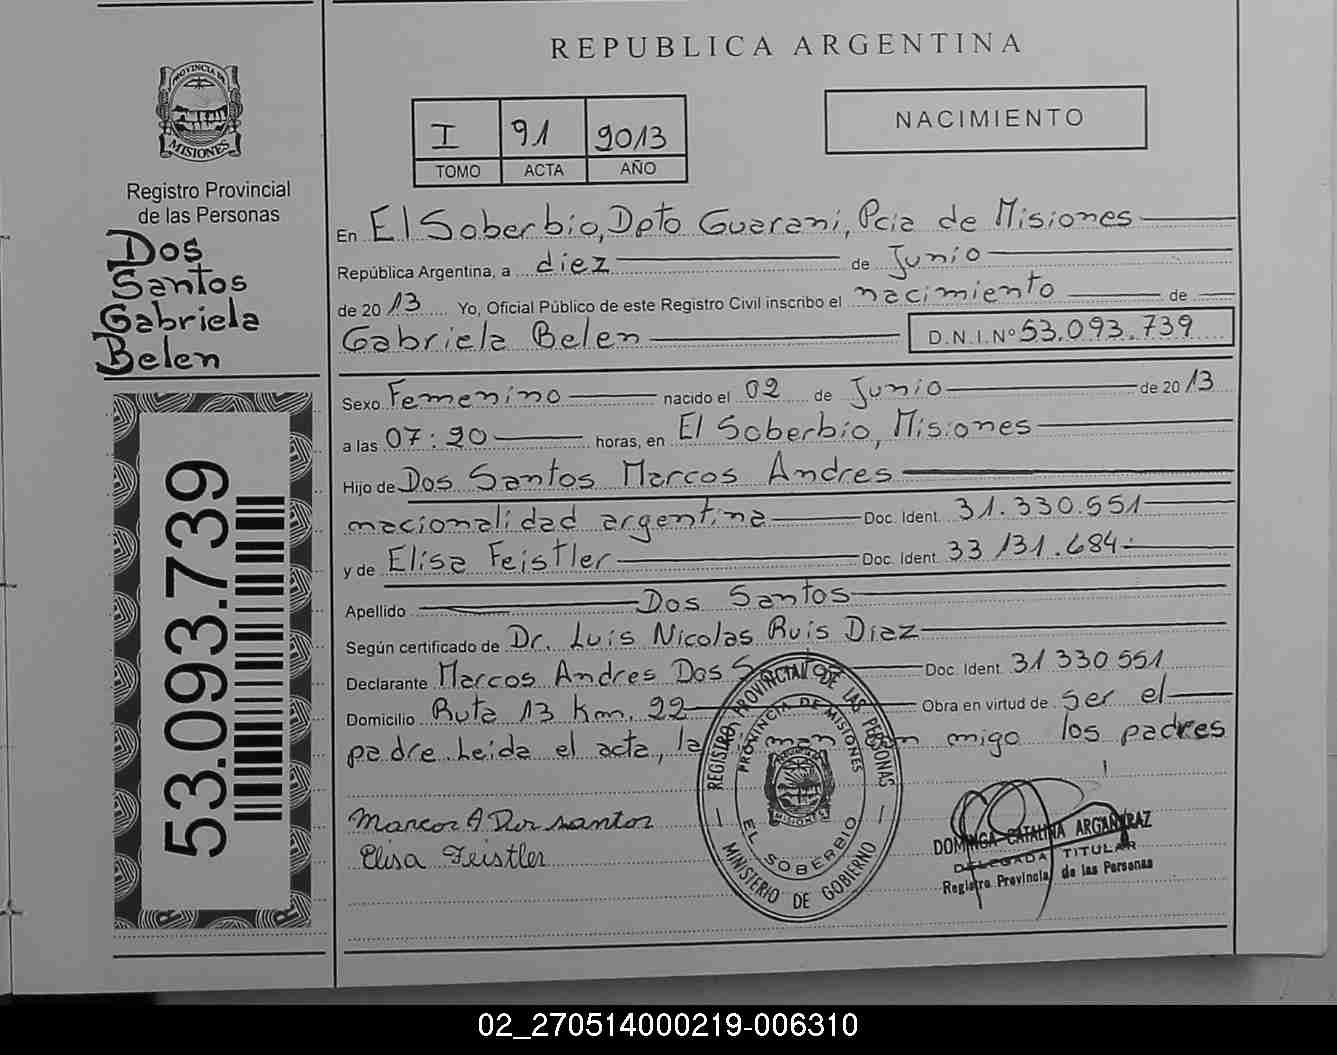 REPUBLICA ARGENTINA
PROVINCIA DE
MISIONES
Registro Provincial
de las Personas
Dos
Santos
Gabriela
Belen
53.093.739
I 91 2013
TOMO ACTA AÑO
NACIMIENTO
En El Soberbio, Dpto Guarani, Pcia de Misiones
República Argentina, a diez de Junio
de 2013 Yo, Oficial Público de este Registro Civil inscribo el nacimiento de
Gabriela Belen D.N.I.Nº 53.093.739
Sexo Femenino nacido el 02 de Junio de 2013
a las 07:20 horas, en El Soberbio, Misiones
Hijo de Dos Santos Marcos Andres
nacionalidad argentina Doc. Ident. 31.330.551
y de Elisa Feistler Doc. Ident. 33 131.684
Apellido Dos Santos
Según certificado de Dr. Luis Nicolas Ruis Diaz
Declarante Marcos Andres Dos Santos Doc. Ident. 31 330 551
Domicilio Ruta 13 Km. 22 Obra en virtud de ser el
padre. Leida el acta, la man migo los padres
Marcos A Dos santos
Elisa Feistler
REGISTRO PROVINCIAL DE LAS PERSONAS
PROVINCIA DE MISIONES
EL SOBERBIO
MINISTERIO DE GOBIERNO
DOMINGA CATALINA ARGAÑARAZ
DELEGADA TITULAR
Registro Provincial de las Personas
02_270514000219-006310